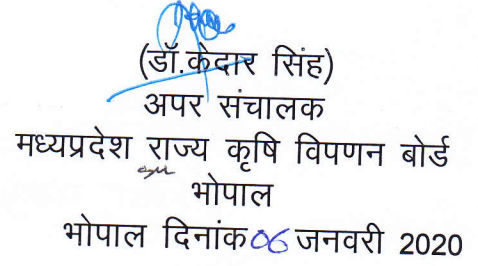 (डॉ.केदार सिंह)
अपर संचालक
मध्यप्रदेश राज्य कृषि विपणन बोर्ड
भोपाल
भोपाल दिनांक 06 जनवरी 2020